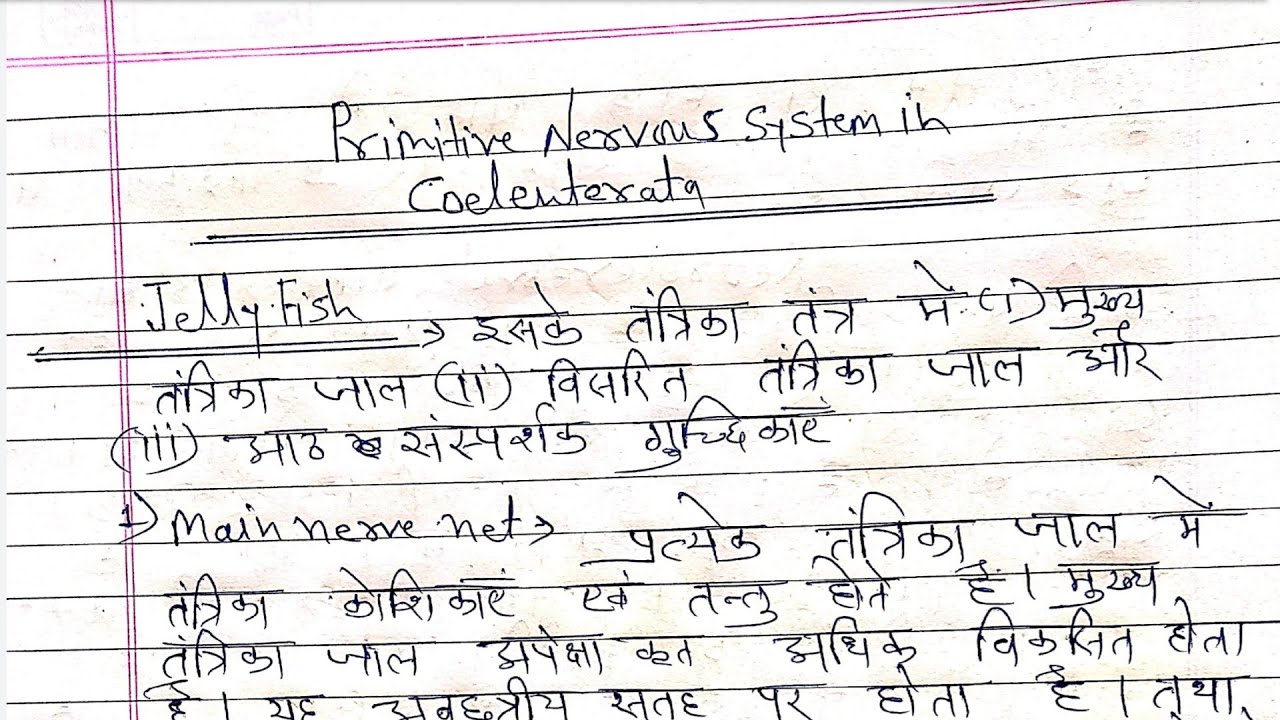 Primitive Nervous System in
Coelenterata
Jelly Fish → इसके तंत्रिका तंत्र में (i) मुख्य
तंत्रिका जाल (ii) विसरित तंत्रिका जाल और
(iii) आठ संस्पर्शक गुच्छिकाएं
1) Main nerve net → प्रत्येक तंत्रिका जाल में
तंत्रिका कोशिकाएं एवं तन्तु होते है। मुख्य
तंत्रिका जाल अपेक्षाकृत अधिक विकसित होता
है। यह अवछत्रीय सतह पर होता है। तथा